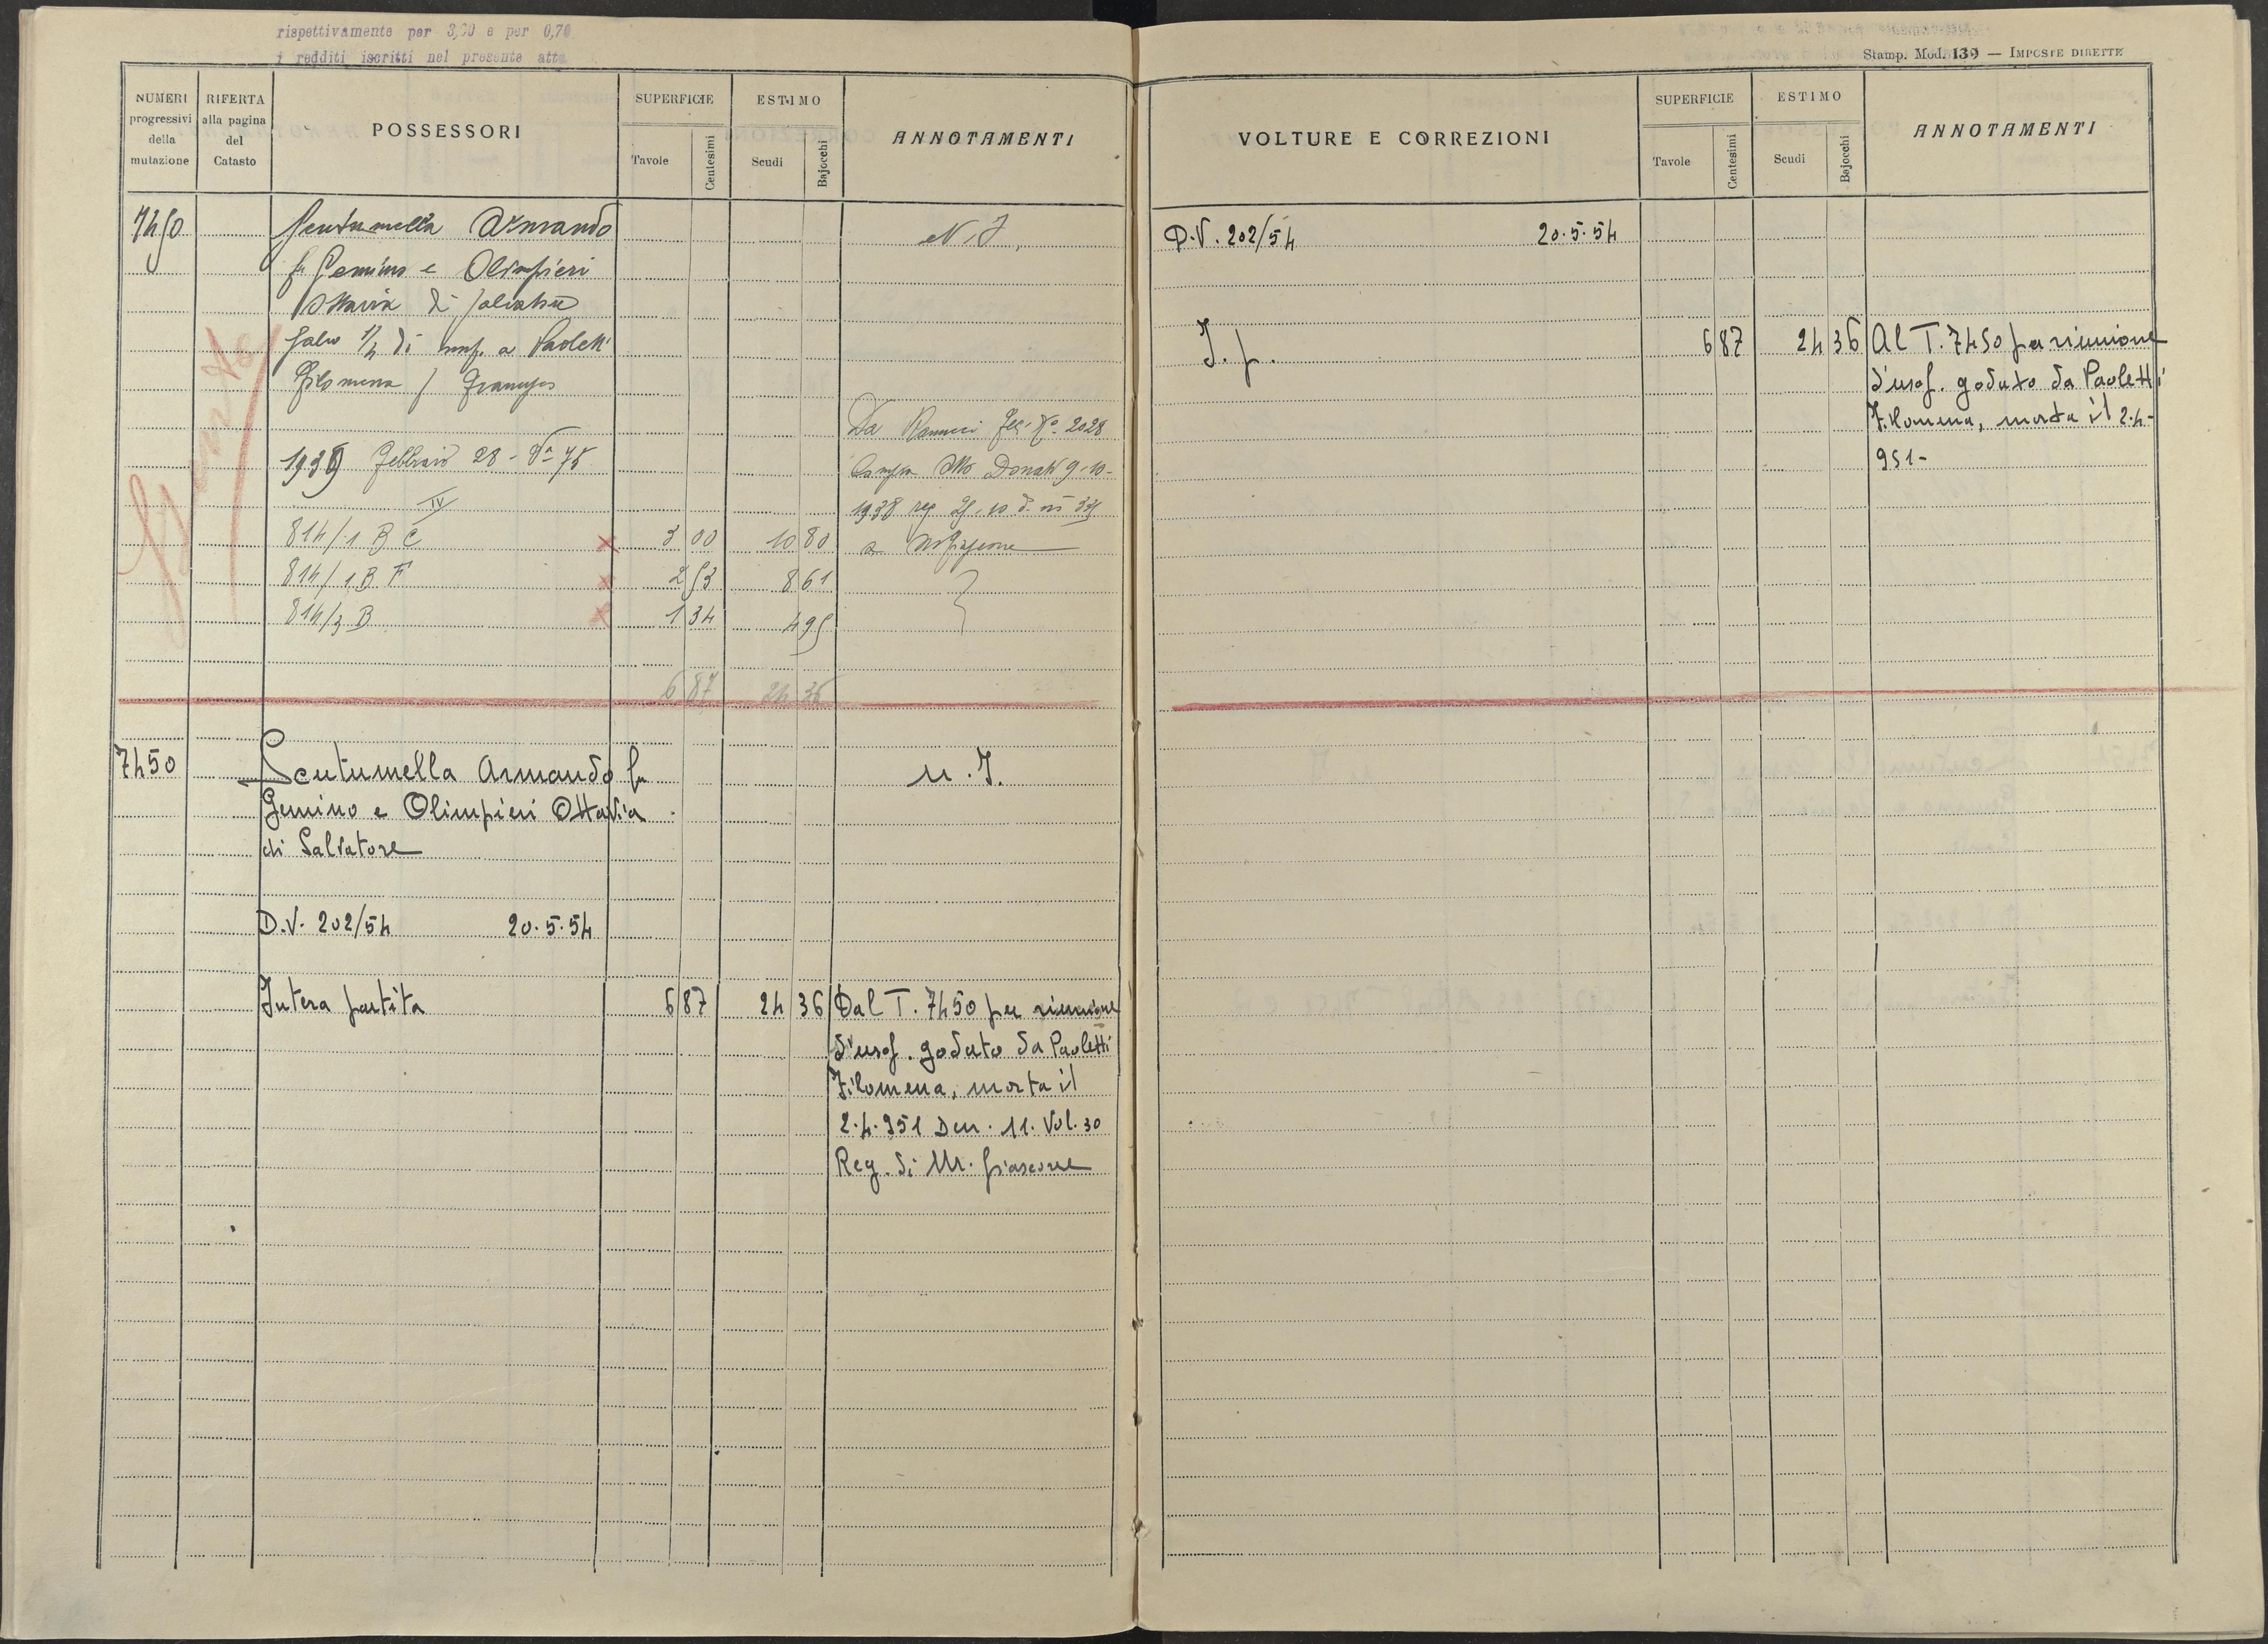 rispettivamente per 3,60 e per 0,70
i redditi iscritti nel presente atto
NUMERI progressivi della mutazione
RIFERTA alla pagina del Catasto
POSSESSORI
SUPERFICIE
Tavole
Centesimi
ESTIMO
Scudi
Bajocchi
ANNOTAMENTI
7450
Scutumella Armando
fu Gemino e Olimpieri
Ottavia di Salvatore
salvo 1/4 di usuf. a Paoletti
Filomena
N. I.
1939 Febbraio 28 - Va 75
IV
Da Ranucci
2028
Donati 9-10-
1938 reg
814/1 B C x 3 00 10 80
814/1 B F x 2 53 8 61
814/3 B x 1 34 4 95
6 87 24 36
7450
Scutumella Armando fu
Gemino e Olimpieri Ottavia
di Salvatore
N. I.
D.V. 202/54 20.5.54
Intera partita 6 87 24 36 Dal T. 7450 per riunione
d'usof. goduto da Paoletti
Filomena, morta il
2.4.951 Den. 11. Vol. 30
Reg. di M. fiascone
Stamp. Mod. 139 — IMPOSTE DIRETTE
VOLTURE E CORREZIONI
SUPERFICIE
Tavole
Centesimi
ESTIMO
Scudi
Bajocchi
ANNOTAMENTI
D.V. 202/54 20.5.54
I. p. 6 87 24 36 Al T. 7450 per riunione
d'usof. goduto da Paoletti
Filomena, morta il 2-4-
951-